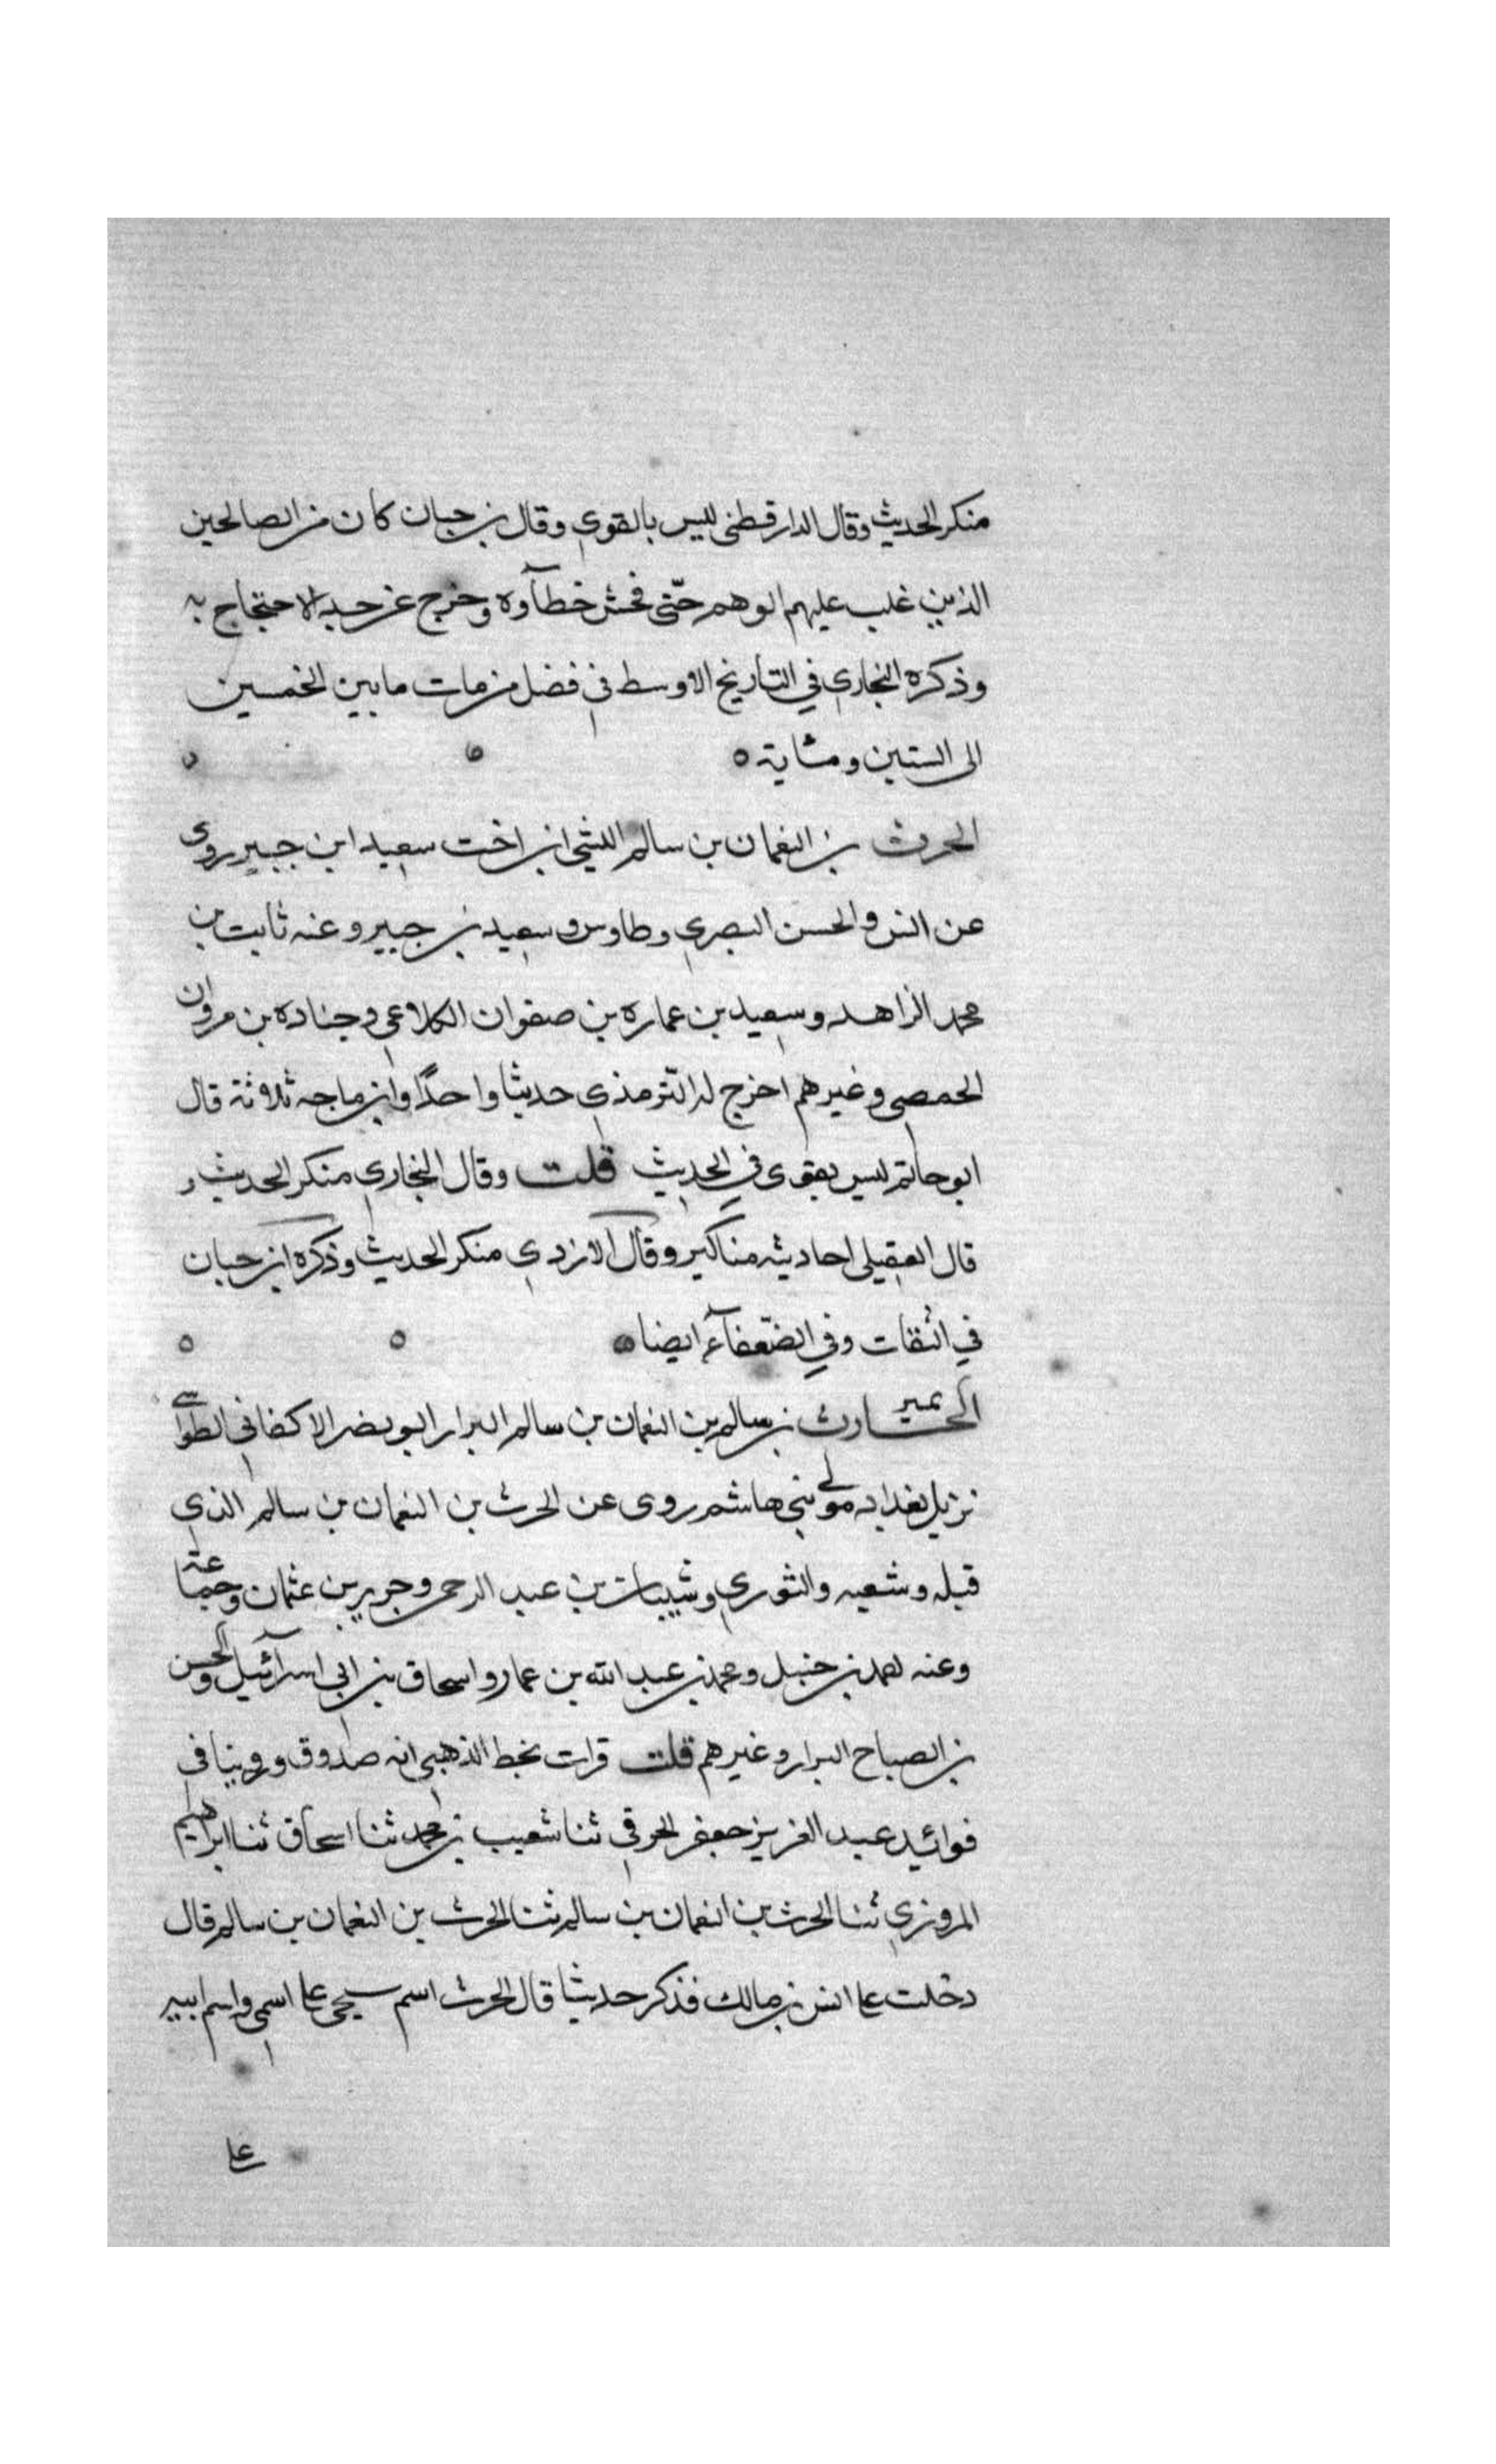 منكر الحديث وقال الدارقطنى ليس بالقوى وقال بن حبان كان من الصالحين
الذين غلب عليهم الوهم حتّى فحش خطآوه وخرج عن حد الاحتجاج به
وذكره البخاري في التاريخ الاوسط في فضل من مات ما بين الخمسين
الى الستين ومئاية ٥
الحرث بن النعمان بن سالم الليثي ابن اخت سعيد ابن جبير روى
عن انس والحسن البصري وطاوس وسعيد بن جبير وعنه ثابت بن
محمد الزاهد وسعيد بن عماره بن صفوان الكلاعى وجناده بن مروان
الحمصي وغيرهم اخرج له التّرمذي حديثا واحدًا وابن ماجه ثلاثة قال
ابو حاتم ليس بقوى في الحديث قلت وقال البخاري منكر الحديث و
قال العقيلى احاديثه مناكير وقال الازدي منكر الحديث وذكره ابن حبان
في الثقات وفي الضّعفآء ايضا
الحارث بن سالم بن النعمان بن سالم البزار ابو نضر الاكفاني الطواسى
نزيل بغداد مولى بنى هاشم روى عن الحرث بن النعمان بن سالم الذي
قبله وشعبه والثوري وشيبان بن عبد الرحمن وجرير بن عثمان وجماعة
وعنه احمد بن حنبل ومحمد بن عبد الله بن عمار واسحاق بن ابى اسرآئيل والحسن
بن الصباح البزار وغيرهم قلت قرات بخط الذهبي انه صدوق وروينا في
فوائيد عبد العزيز جعفر الخرقي ثنا شعيب بن محمد ثنا اسحاق ثنا ابراهيم
المروزي ثنا الحرث بن النعمان بن سالم ثنا الحرث بن النعمان بن سالم قال
دخلت على انس بن مالك فذكر حديثا قال الحرث اسم شيخى على اسمى واسم ابيه
على